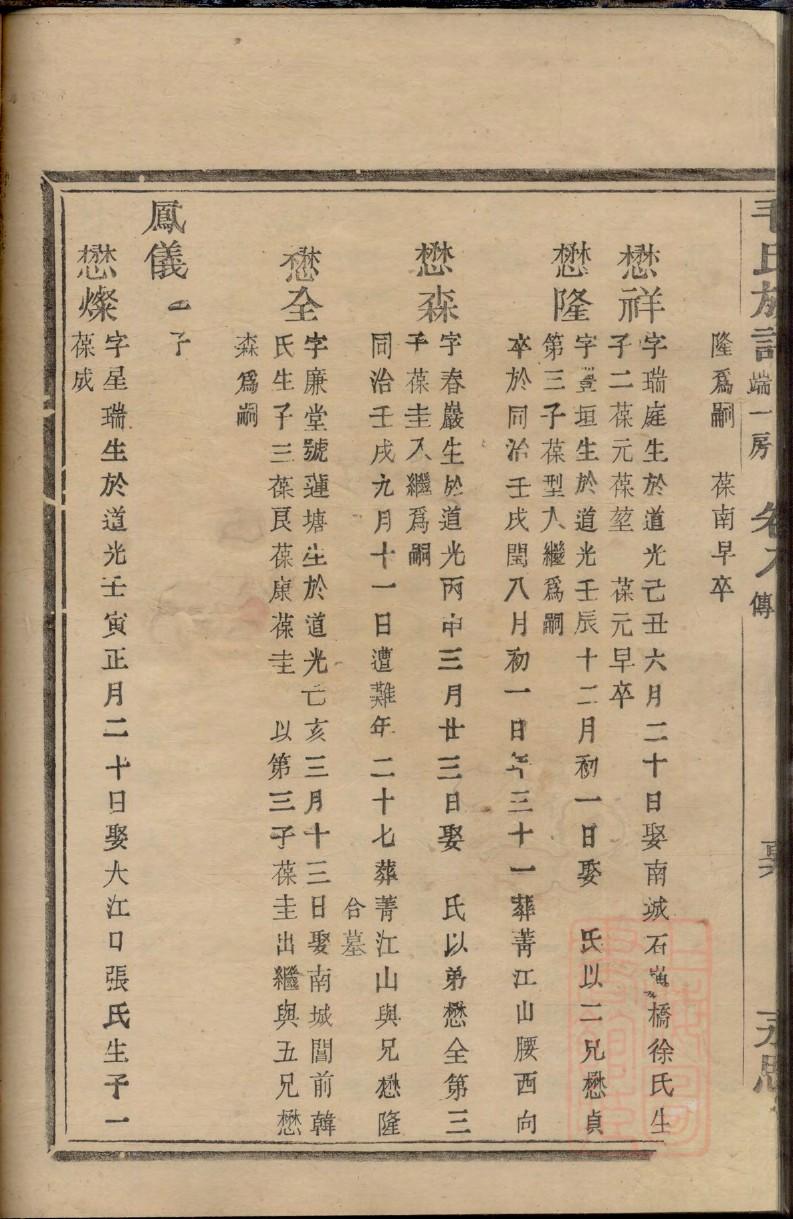 毛氏族譜 端一房 卷九 傳 永思
隆爲嗣 葆南早卒
懋祥
字瑞庭生於道光己丑六月二十日娶南城石橋徐氏生
子二葆元葆堃 葆元早卒
懋隆
字垣生於道光壬辰十二月初一日娶 氏以二兄懋貞
第三子葆型入繼爲嗣
卒於同治壬戌閏八月初一日年三十一葬菁江山腰西向
懋森
字春巖生於道光丙申三月廿三日娶 氏以弟懋全第三
子葆圭入繼爲嗣
同治壬戌九月十一日遭難年二十七葬菁江山與兄懋隆
合墓
懋全
字廉堂號蓮塘生於道光己亥三月十三日娶南城閶前韓
氏生子三葆艮葆康葆圭 以第三子葆圭出繼與五兄懋
森爲嗣
鳳儀 子
懋燦
字星瑞生於道光壬寅正月二十日娶大江口張氏生子一
葆成